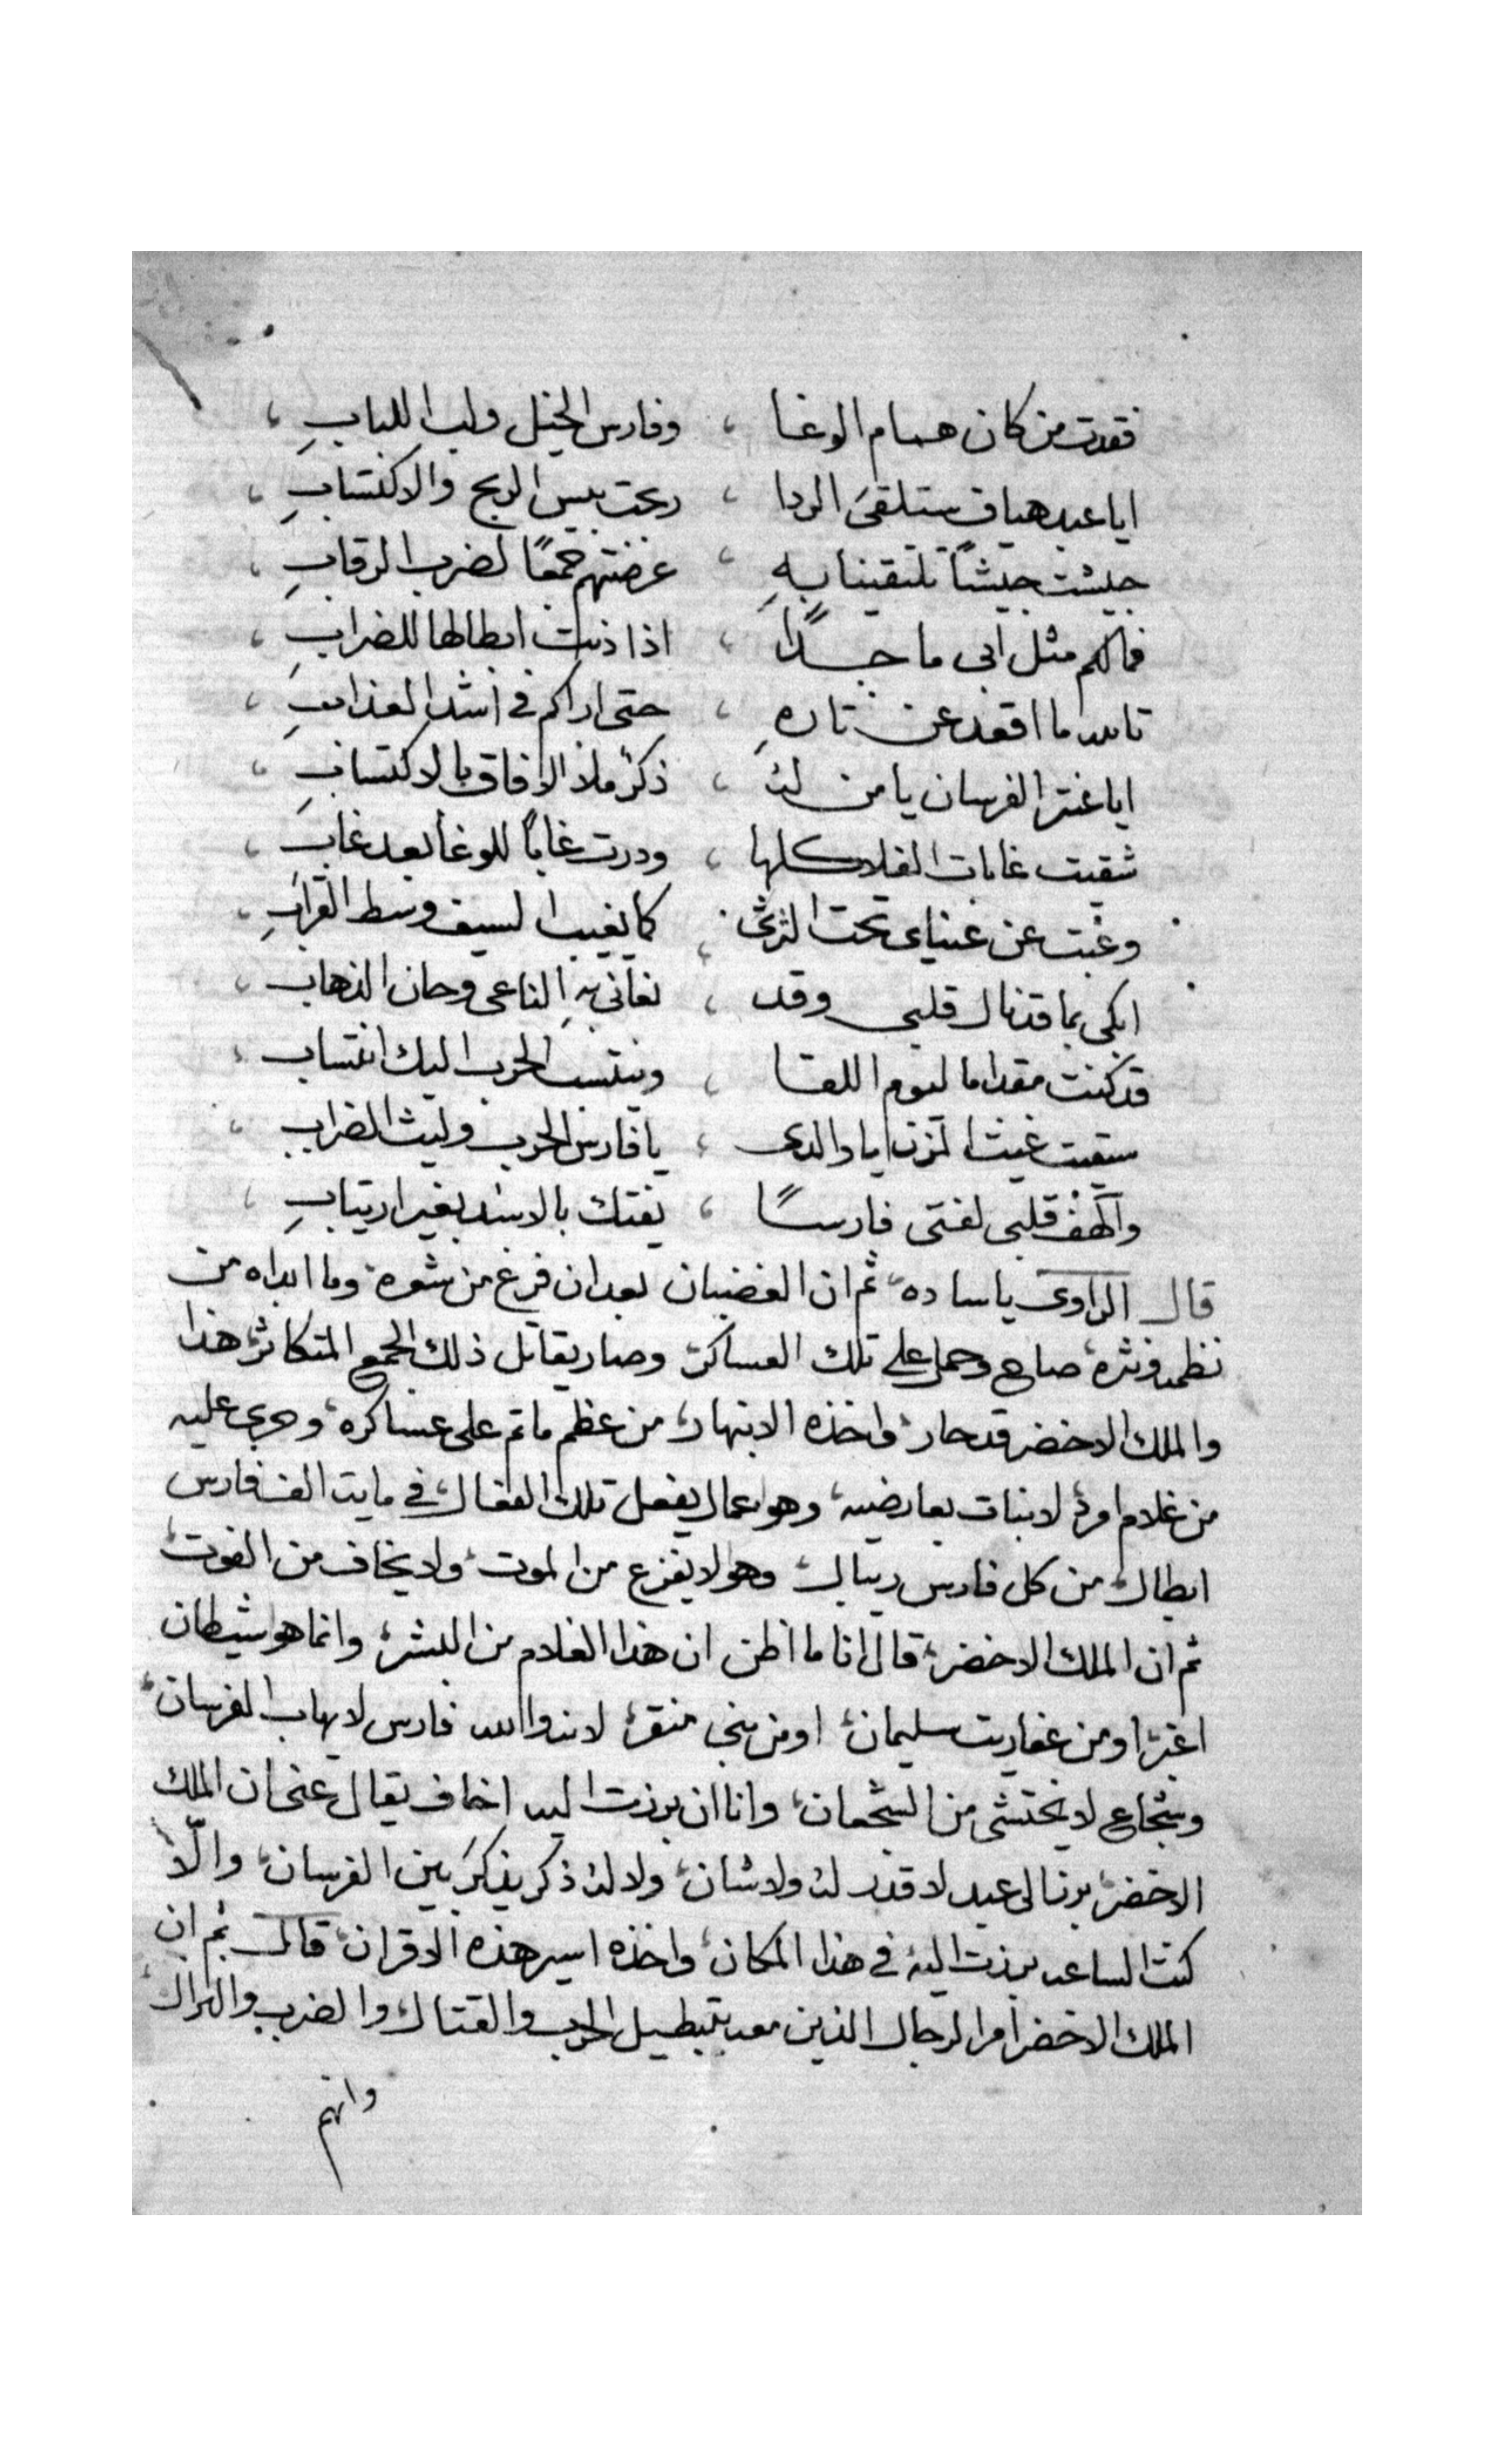 فقدت من كان همام الوغا ، وفارس الخيل ولب اللبابِ ،
ايا عبد هياف ستلقى الردا ، ربحت بيس الربح والاكتسابِ ،
جيشت جيشًا تلتقينا بِهِ ، عرضتهم جمعًا لضرب الرقابِ ،
فمالكم مثل ابى ماجدًا ، اذا دنت ابطالها للضرابِ ،
تالله ما اقعد عن تارهِ ، حتى اراكم في اشد العذابِ ،
ايا عنتر الفرسان يا من له ، ذكرٌ ملا الافاق بالاكتسابِ ،
شقيت غابات الفلا كلها ، ودرت غابًا للوغا بعد غابِ ،
وغبت عن عيناى تحت الثرى ، كما يغيب السيف وسط القرابِ ،
ابكى بما قد نال قلبى وقد ، نعانى بهِ الناعى وحان الذهاب ،
قد كنت مقداما ليوم اللقا ، وينتسب الحرب اليك انتساب ،
سقيت غيث المزن ايا والدى ، يا فارس الحرب وليث الضراب ،
والهف قلبى لفتى فارسًا ، يفتك بالاسد بغير ارتيابِ ،
قال الراوى ياساده، ثم ان الغضبان بعد ان فرغ من شعره، وما ابداه من
نظمه ونثره، صاح وحمل على تلك العساكر، وصار يقاتل ذلك الجمع المتكاثر، هذا
والملك الاخضر قد حار، واخذه الانبهار، من عظم ما تم على عساكره، وجرى عليه
من غلام امرد لا نبات بعارضيه، وهو عمال يفعل تلك الفعال، في مايت الف فارس
ابطال، من كل فارس ريبال، وهو لا يفزع من الموت، ولا يخاف من الفوت،
ثم ان الملك الاخضر، قال انا ما اظن ان هذا الغلام من البشر، وانما هو شيطان
اغبر، او من عفاريت سليمان، او من بنى منقر، لانه والله فارس لا يهاب الفرسان،
وشجاع لا يختشى من الشجعان، وانا ان برزت اليه اخاف يقال عنى ان الملك
الاخضر، برز الى عبد لا قدر له ولا شان، ولا له ذكر يذكر بين الفرسان، والّا
كنت الساعه برزت اليه في هذا المكان، واخذه اسير هذه الاقران، قال ثم ان
الملك الاخضر امر الرجال الذين معه بتبطيل الحرب والقتال، والضرب والنزال،
وانهم